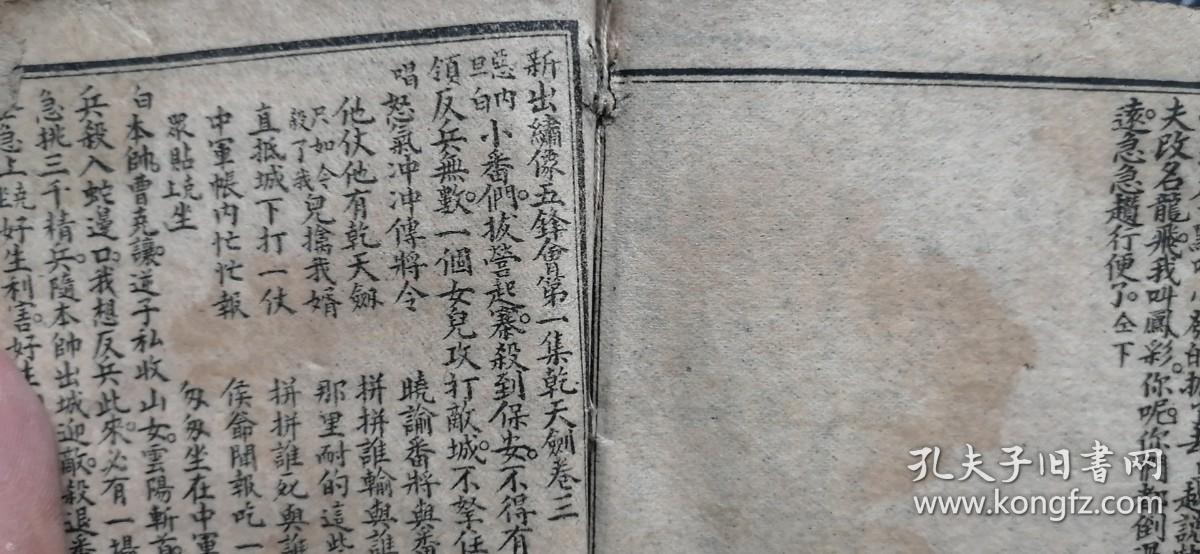 夫改名龍飛我叫鳳彩你呢你們都倒
遠急急趲行便了仝下
新出繡像五鋒會第一集乾天劍卷三
惡旦內白小番們拔營起寨殺到保安不得有
領反兵無數一個女兒攻打敵城不拏住
唱 怒氣冲冲傳將令 曉諭番將與番
他仗他有乾天劍 拼拼誰輸與誰
只如今殺了我兒擒我婿 那里耐的這些
直抵城下打一仗 拼拼誰死與誰
中軍帳內忙忙報 侯爺聞報吃一
眾貼堯上坐 匆匆坐在中軍
白本帥曹堯讓逆子私收山女雲陽斬首
兵殺入蛇邊口我想反兵此來必有一場
急挑三千精兵隨本帥出城迎敵殺退番
急上堯坐好生利害好生
孔夫子旧书网
www.kongfz.com